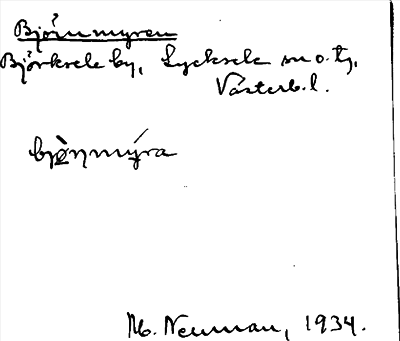 Björnmyren
Björksele by, Lycksele sn o. tg,
Västerb. l.
bjö̀ṇmýra
M. Neuman, 1934.